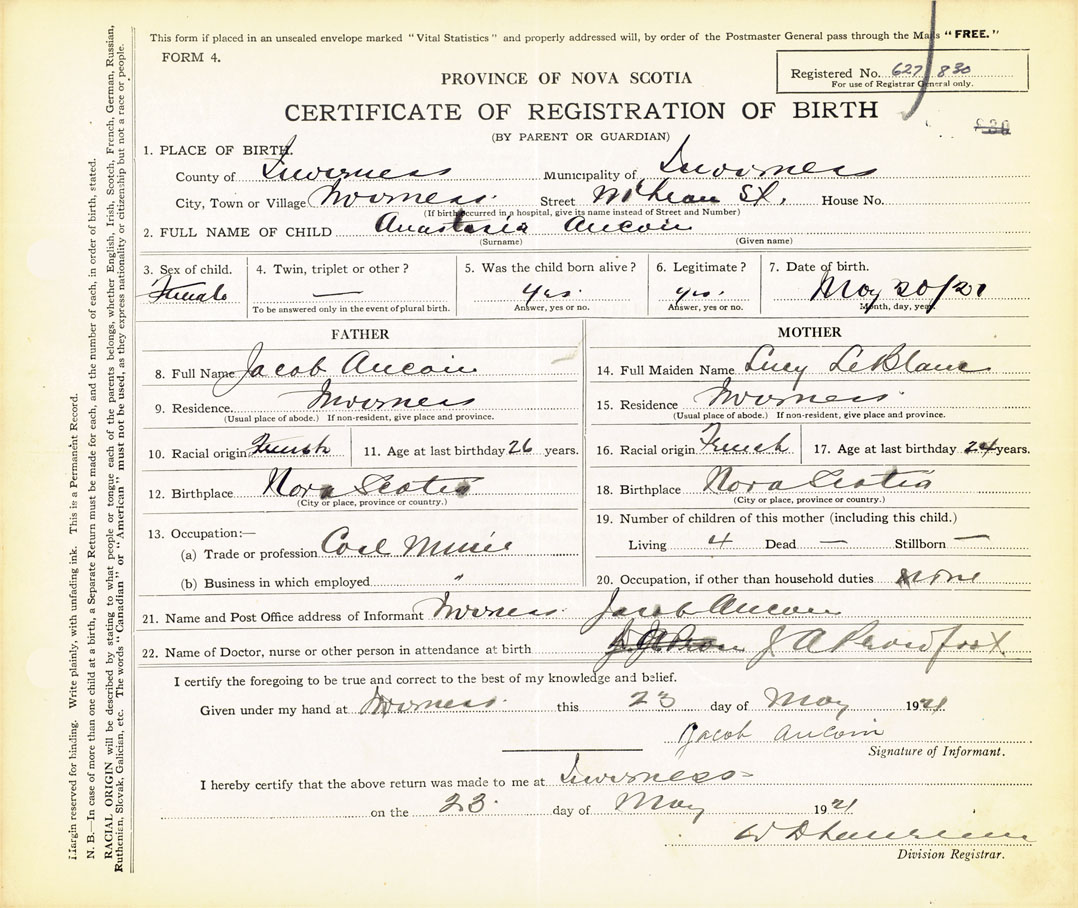 This form if placed in an unsealed envelope marked "Vital Statistics" and properly addressed will, by order of the Postmaster General pass through the Mails "FREE."
FORM 4.
Registered No. 627/830
For use of Registrar General only.
PROVINCE OF NOVA SCOTIA
CERTIFICATE OF REGISTRATION OF BIRTH
(BY PARENT OR GUARDIAN)
1. PLACE OF BIRTH.
County of Inverness Municipality of Inverness
City, Town or Village Inverness. Street McLean St. House No.
(If birth occurred in a hospital, give its name instead of Street and Number)
2. FULL NAME OF CHILD Anastasia Aucoin
(Surname) (Given name)
3. Sex of child. 4. Twin, triplet or other? 5. Was the child born alive? 6. Legitimate? 7. Date of birth.
Female — yes. yes. May 20/21
To be answered only in the event of plural birth. Answer, yes or no. Answer, yes or no. Month, day, year.
FATHER MOTHER
8. Full Name Jacob Aucoin 14. Full Maiden Name Lucy LeBlanc
9. Residence. Inverness 15. Residence Inverness.
(Usual place of abode.) If non-resident, give place and province. (Usual place of abode.) If non-resident, give place and province.
10. Racial origin French 11. Age at last birthday 26 years. 16. Racial origin French 17. Age at last birthday 24 years.
12. Birthplace Nova Scotia 18. Birthplace Nova Scotia
(City or place, province or country.) (City or place, province or country.)
13. Occupation:— 19. Number of children of this mother (including this child.)
(a) Trade or profession Coal Miner Living 4 Dead — Stillborn —
(b) Business in which employed " 20. Occupation, if other than household duties none
21. Name and Post Office address of Informant Inverness. Jacob Aucoin
22. Name of Doctor, nurse or other person in attendance at birth J A Proudfoot
I certify the foregoing to be true and correct to the best of my knowledge and belief.
Given under my hand at Inverness. this 23 day of May 1921
Jacob Aucoin
Signature of Informant.
I hereby certify that the above return was made to me at Inverness
on the 23. day of May 1921
Division Registrar.
Margin reserved for binding. Write plainly, with unfading ink. This is a Permanent Record.
N. B.—In case of more than one child at a birth, a Separate Return must be made for each, and the number of each, in order of birth, stated.
RACIAL ORIGIN will be described by stating to what people or tongue each of the parents belongs, whether English, Irish, Scotch, French, German, Russian,
Ruthenian, Slovak, Galician, etc. The words "Canadian" or "American" must not be used, as they express nationality or citizenship but not a race or people.